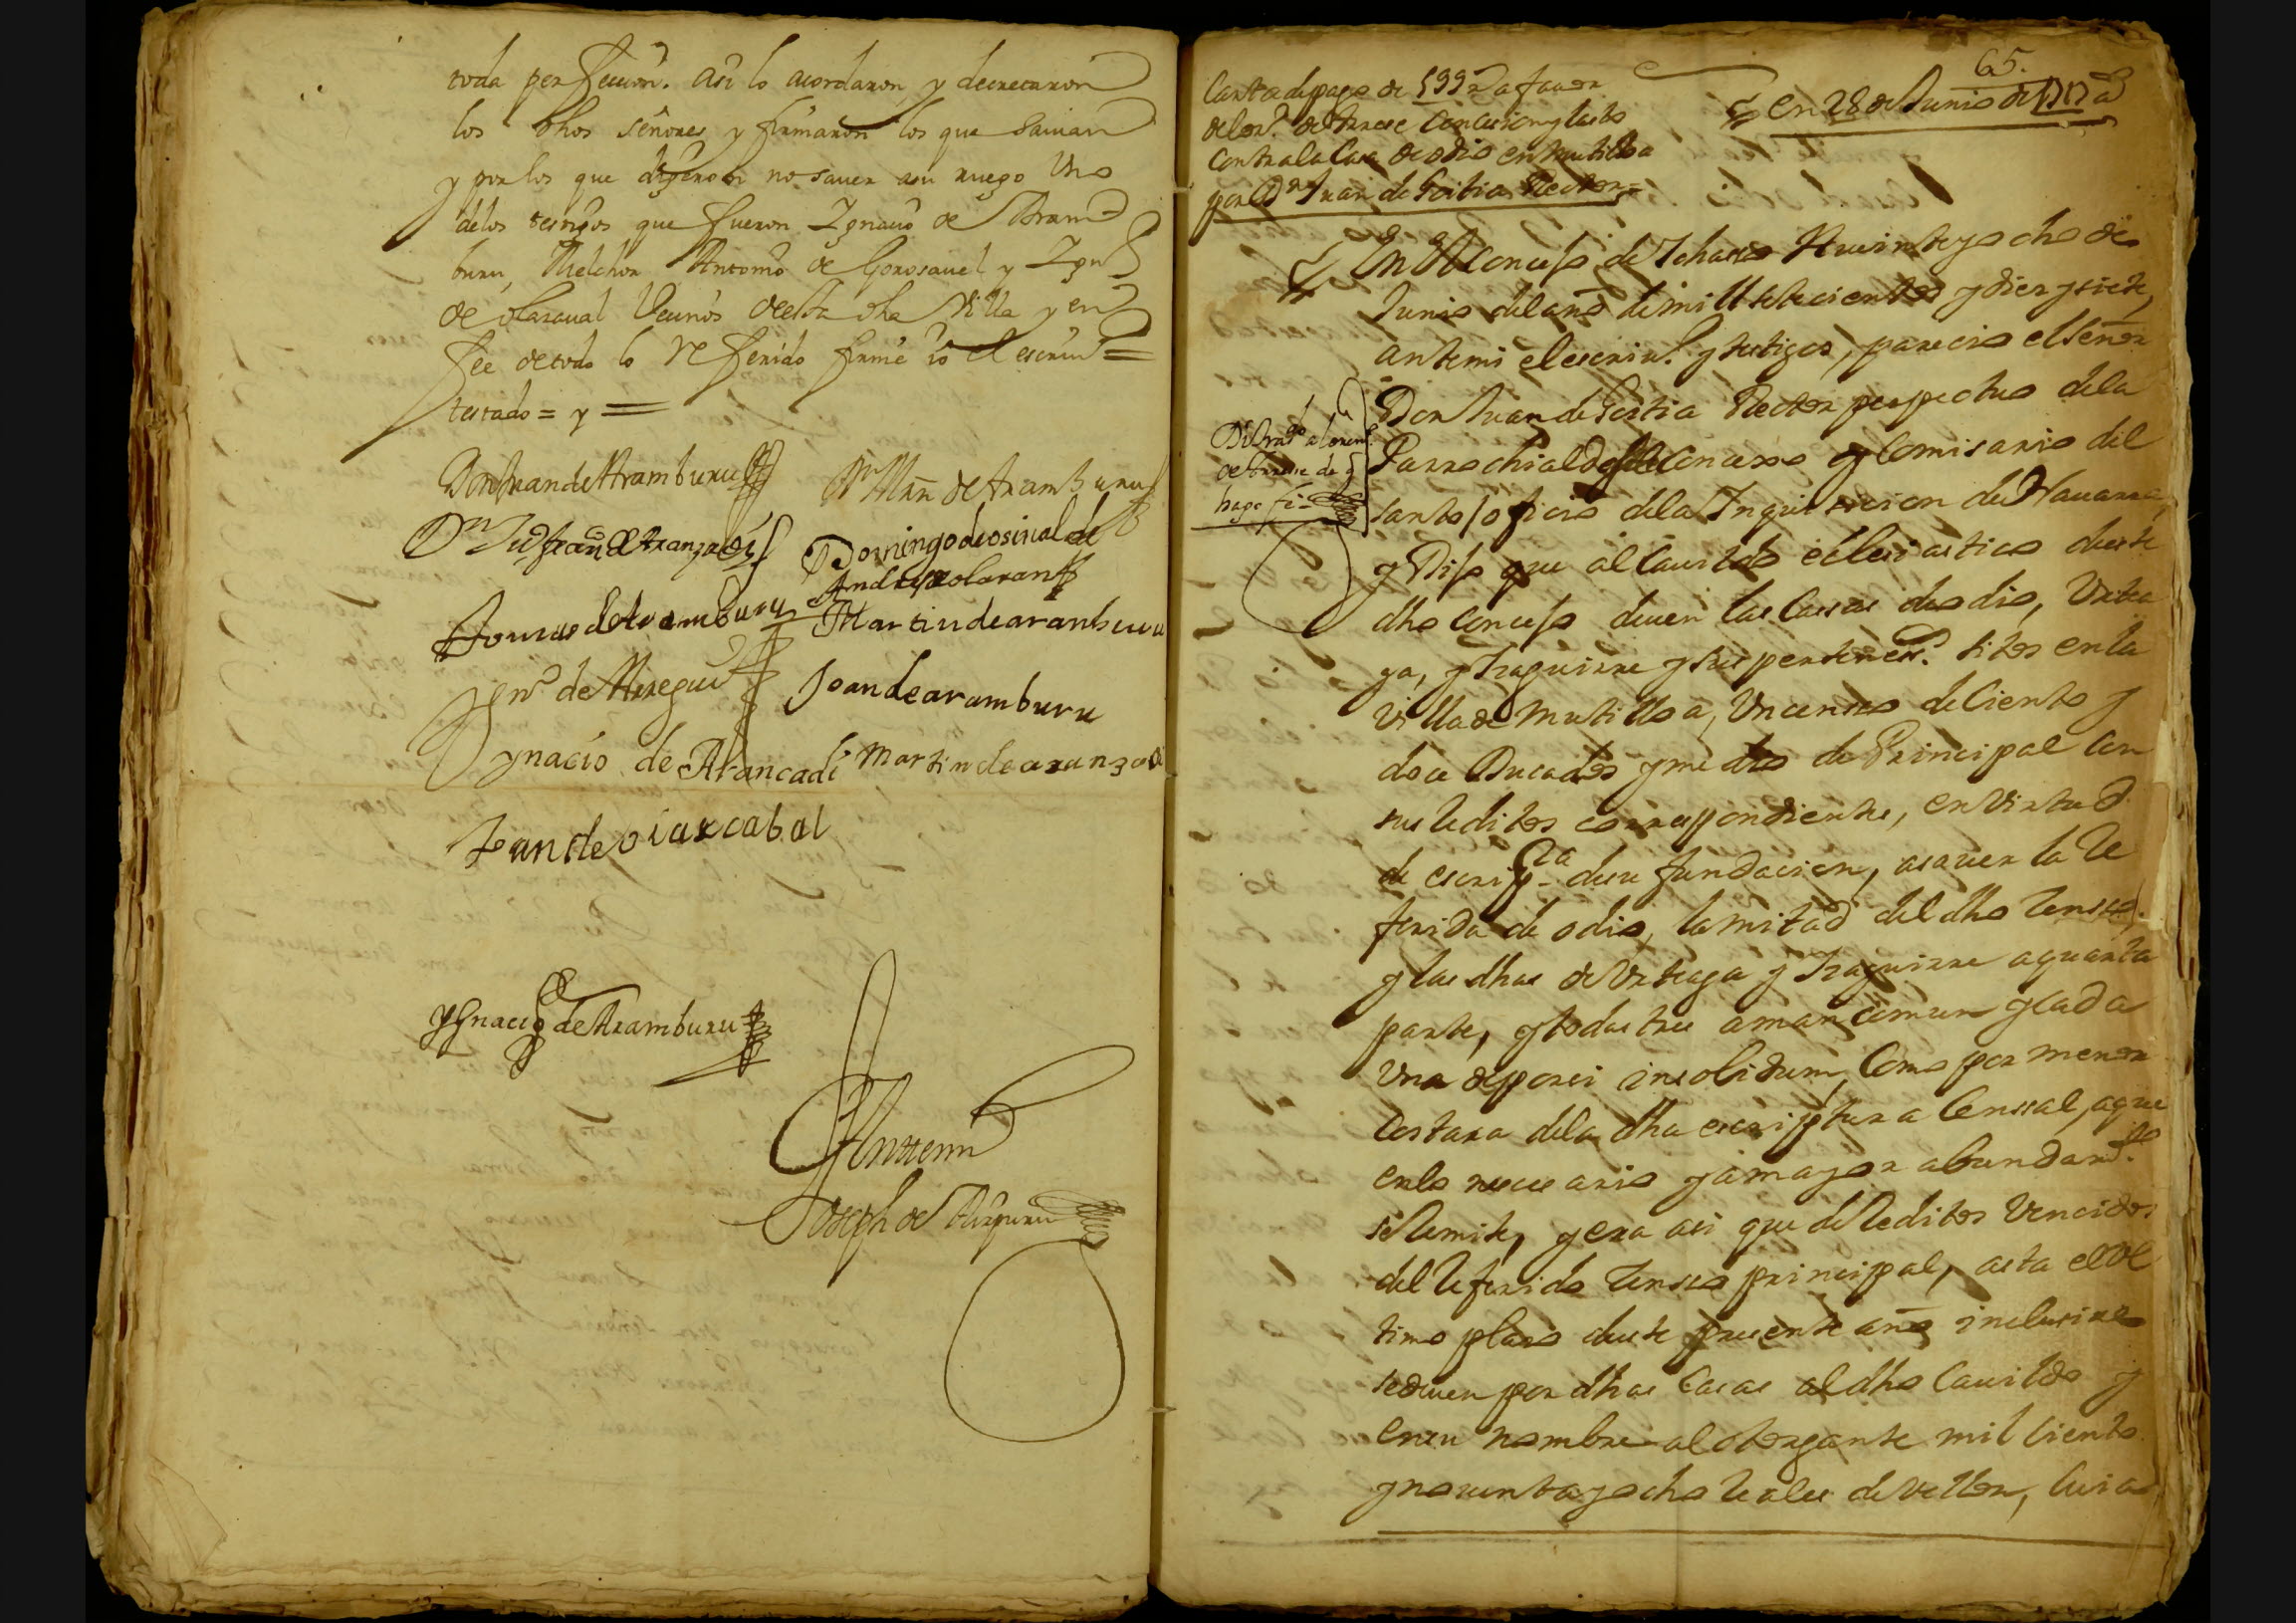 toda perfecion. Asi lo acordaron y decretaron
los dhos señores y firmaron los que savian
y por los que digeron no saver a su ruego uno
de los testigos que fueron Ignacio de Aram
buru, Melchor Antonio de Gorosavel y Ign.o
de olazaval Vecinos de esta dha Villa y en
fee de todo lo referido firme io el escriv.o =
testado = y =
Don Juan de Aramburu
Dn Mrn de Aramburu
Domingo de osinalde
Andres de olaran
Thomas de Aramburu
Martin de aramburu
Ign.o de Aseguin
Joan de aramburu
Ygnacio de Arancadi
Martin de aranzadi
Juan de oiarcabal
Ygnacio de Aramburu
Ante mi
Joseph de Aizpuru
65.
Carta de pago de 599 Rs a favor
de Lor.o de Arrese Concesion y lasto
contra la Casa de odio en Mutiloa
por Dn Juan de Goitia Rector =
En 28 de Junio de 1717 a
En El Concejo de Ichaso A veinte y ocho de
Junio del año de mill setecientos y diez y siete,
ante mi el escriv.o y testigos, parecio el señor
Don Juan de Goitia Rector perpetuo de la
Parrochial de este Concejo y Comisario del
santo oficio de la Inquisicion de Navarra,
y Dijo que al Cavildo eclesiastico de este
dho Concejo deven las Cassas de odio, Urtea
ga, y Izaguirre y sus pertenen.s sitos en la
Villa de Mutilloa, Un censo de Ciento y
doce Ducados y medio de Principal con
sus Reditos correspondientes, en virtud
de escrip.ra de su fundacion, a saver la Re
ferida de odio, la mitad del dho Censso,
y las dhas de Urteaga y Izaguirre a quarta
parte, y todas tres a mancomun y cada
Una de por si insolidum, Como por menor
Constara de la dha escriptura Censsal, a que
en lo necesario y a mayor abundam.to
se Remite, y era asi que de Reditos Vencidos
del Referido Censso principal, asta el Vl
timo plazo de este presente año inclusive
se deven por dhas Casas al dho Cavildo y
en su nombre al otorgante mil ciento
y noventa y ocho Reales de vellon, cuia
Di Tras.do a loren.o
de Arrese de q
hago fe =